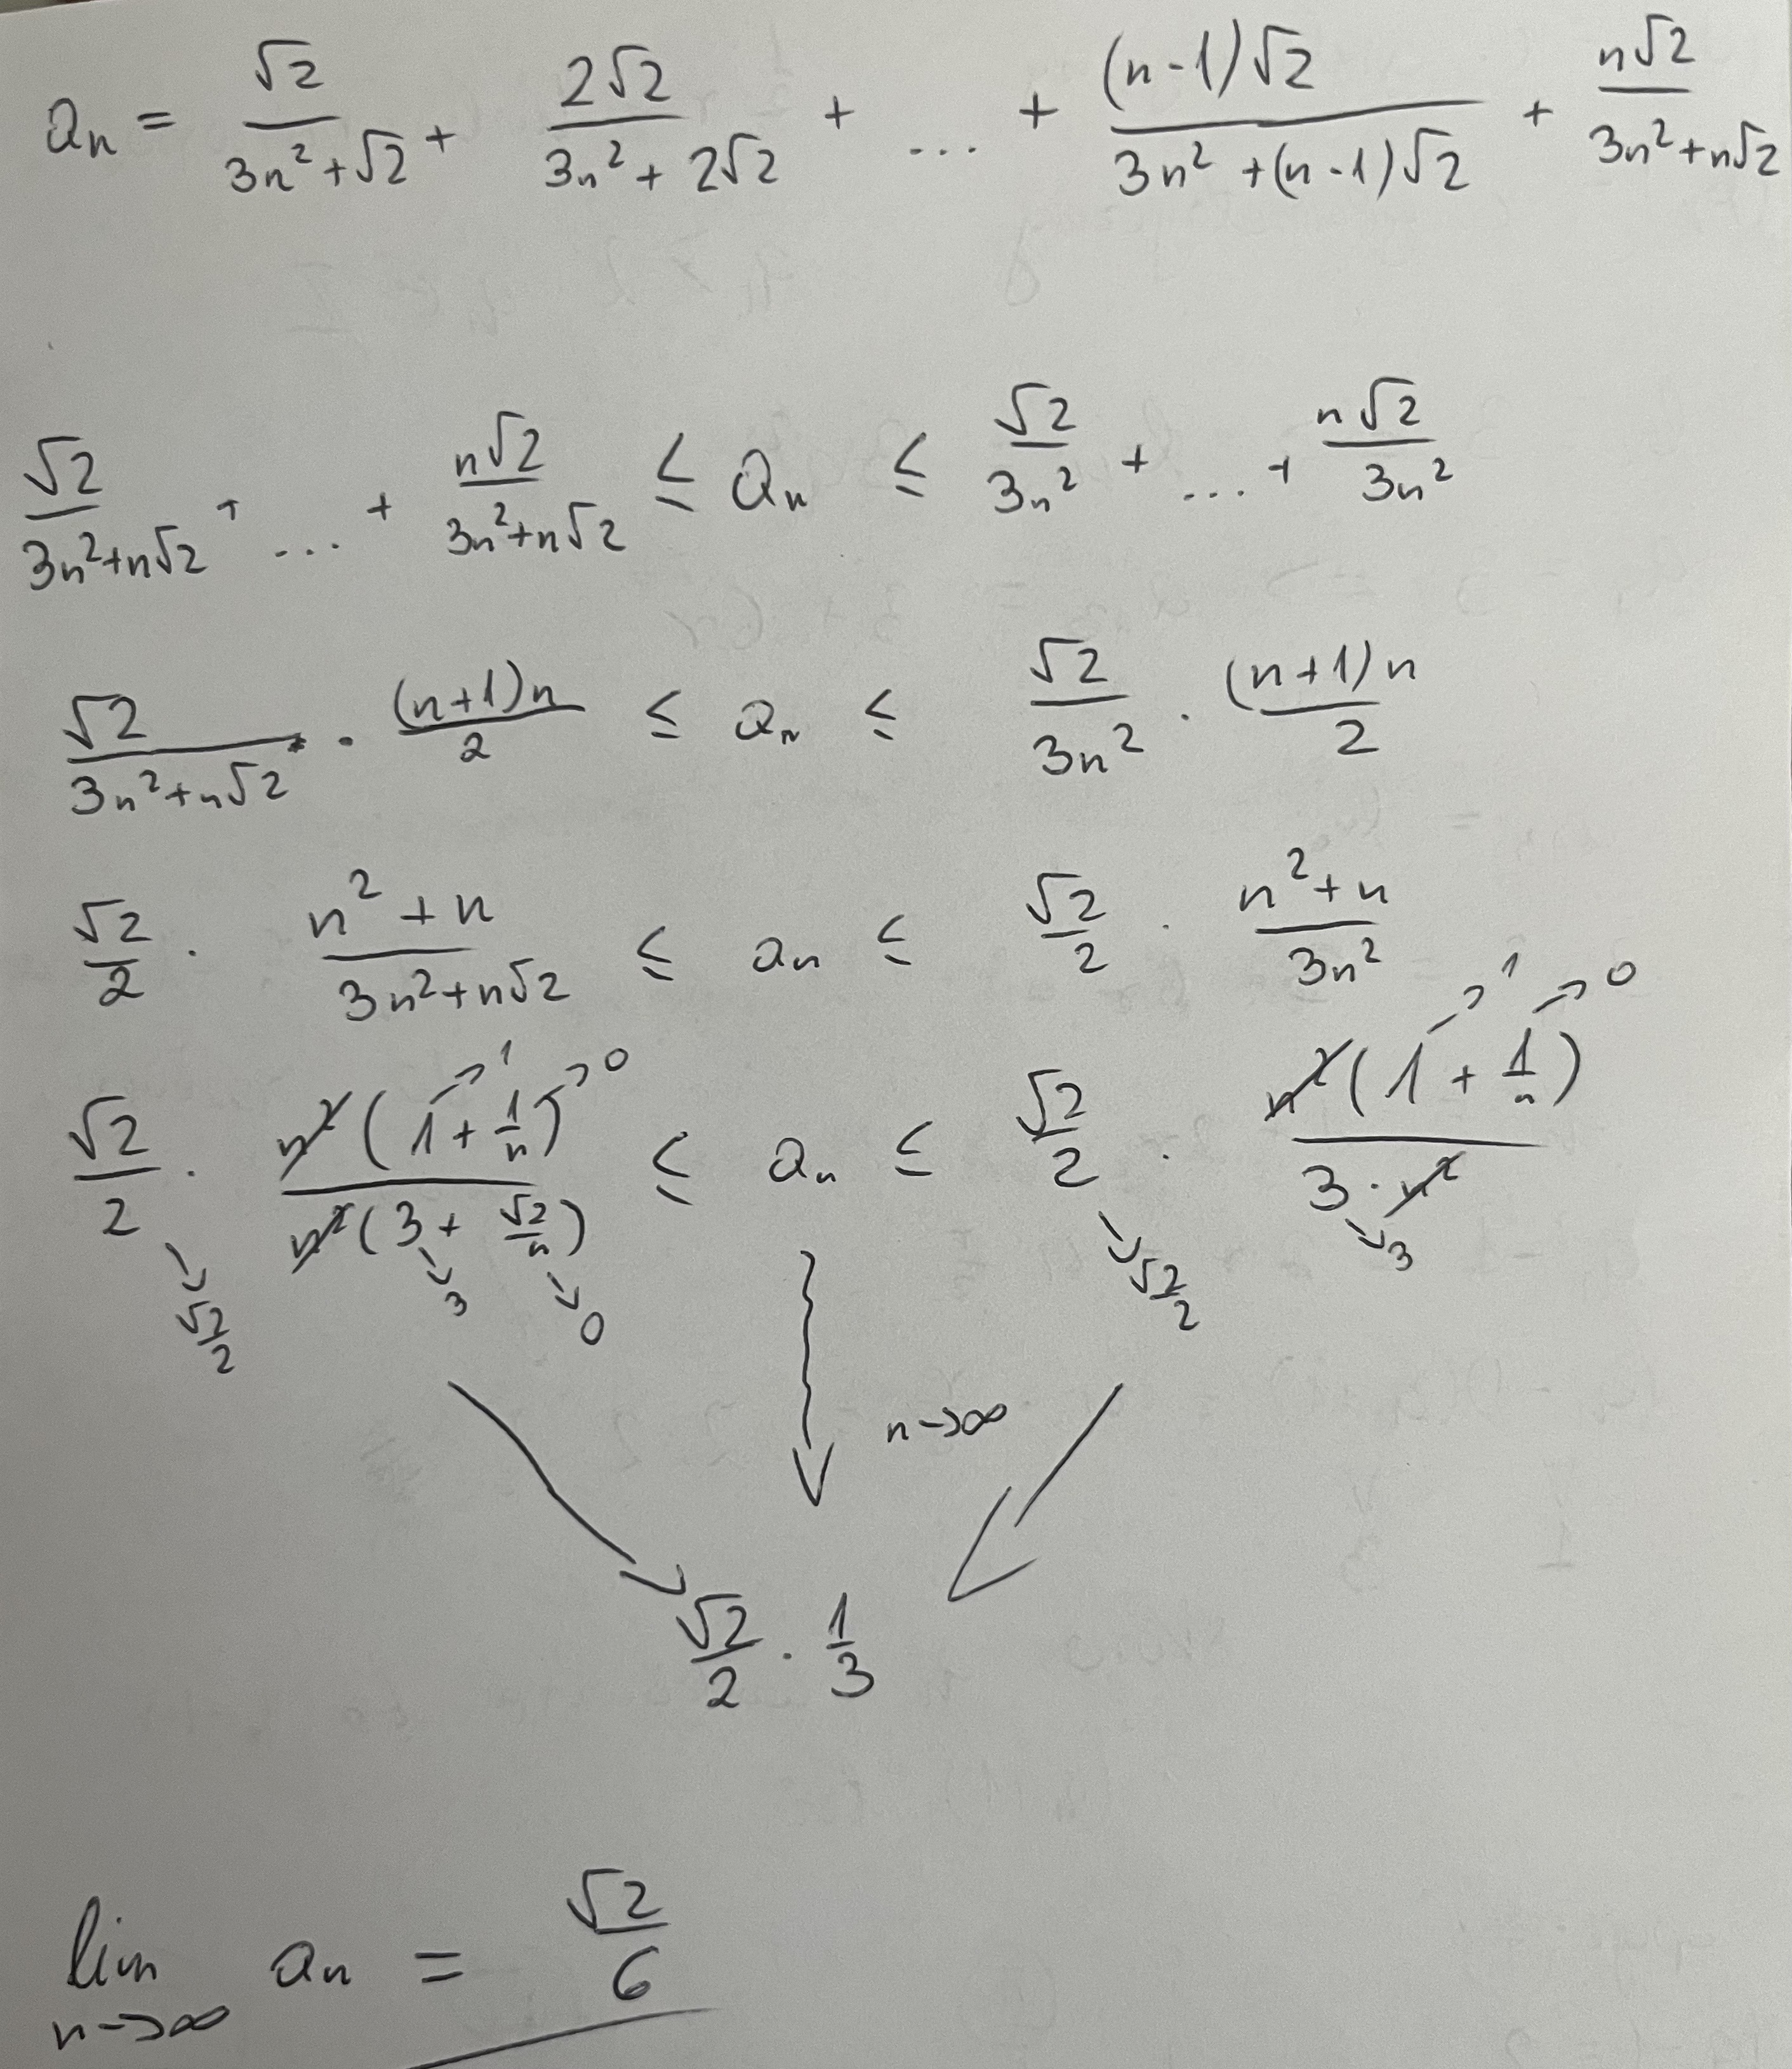 aₙ = √2/(3n²+√2) + 2√2/(3n²+2√2) + ... + (n-1)√2/(3n²+(n-1)√2) + n√2/(3n²+n√2)
√2/(3n²+n√2) + ... + n√2/(3n²+n√2) ≤ aₙ ≤ √2/3n² + ... + n√2/3n²
√2/(3n²+n√2) · (n+1)n/2 ≤ aₙ ≤ √2/3n² · (n+1)n/2
√2/2 · (n²+n)/(3n²+n√2) ≤ aₙ ≤ √2/2 · (n²+n)/3n²
→1 →0 →1 →0
√2/2 · n²(1+1/n)/n²(3+√2/n) ≤ aₙ ≤ √2/2 · n²(1+1/n)/3·n²
→√2/2 →3 →0 →√2/2 →3
n→∞
√2/2 · 1/3
lim n→∞ aₙ = √2/6